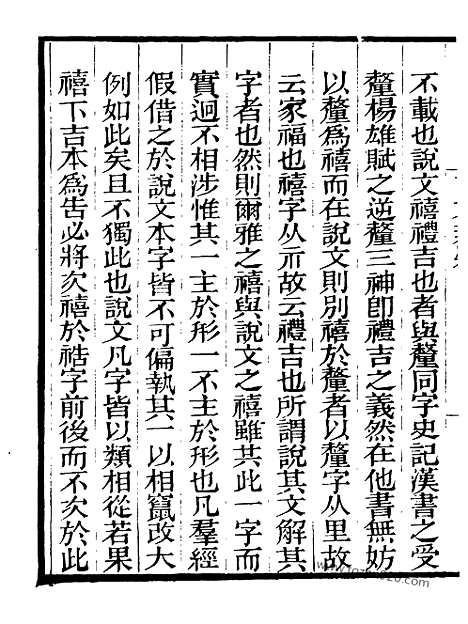 不載也說文禧禮吉也者與釐同字史記漢書之受
釐楊雄賦之逆釐三神卽禮吉之義然在他書無妨
以釐爲禧而在說文則別禧於釐者以釐字从里故
云家福也禧字从示故云禮吉也所謂說其文解其
字者也然則爾雅之禧與說文之禧雖共此一字而
實迥不相涉惟其一主於形一不主於形也凡羣經
假借之於說文本字皆不可偏執其一以相竄改大
例如此矣且不獨此也說文凡字皆以類相從若果
禧下吉本爲告必將次禧於祰字前後而不次於此